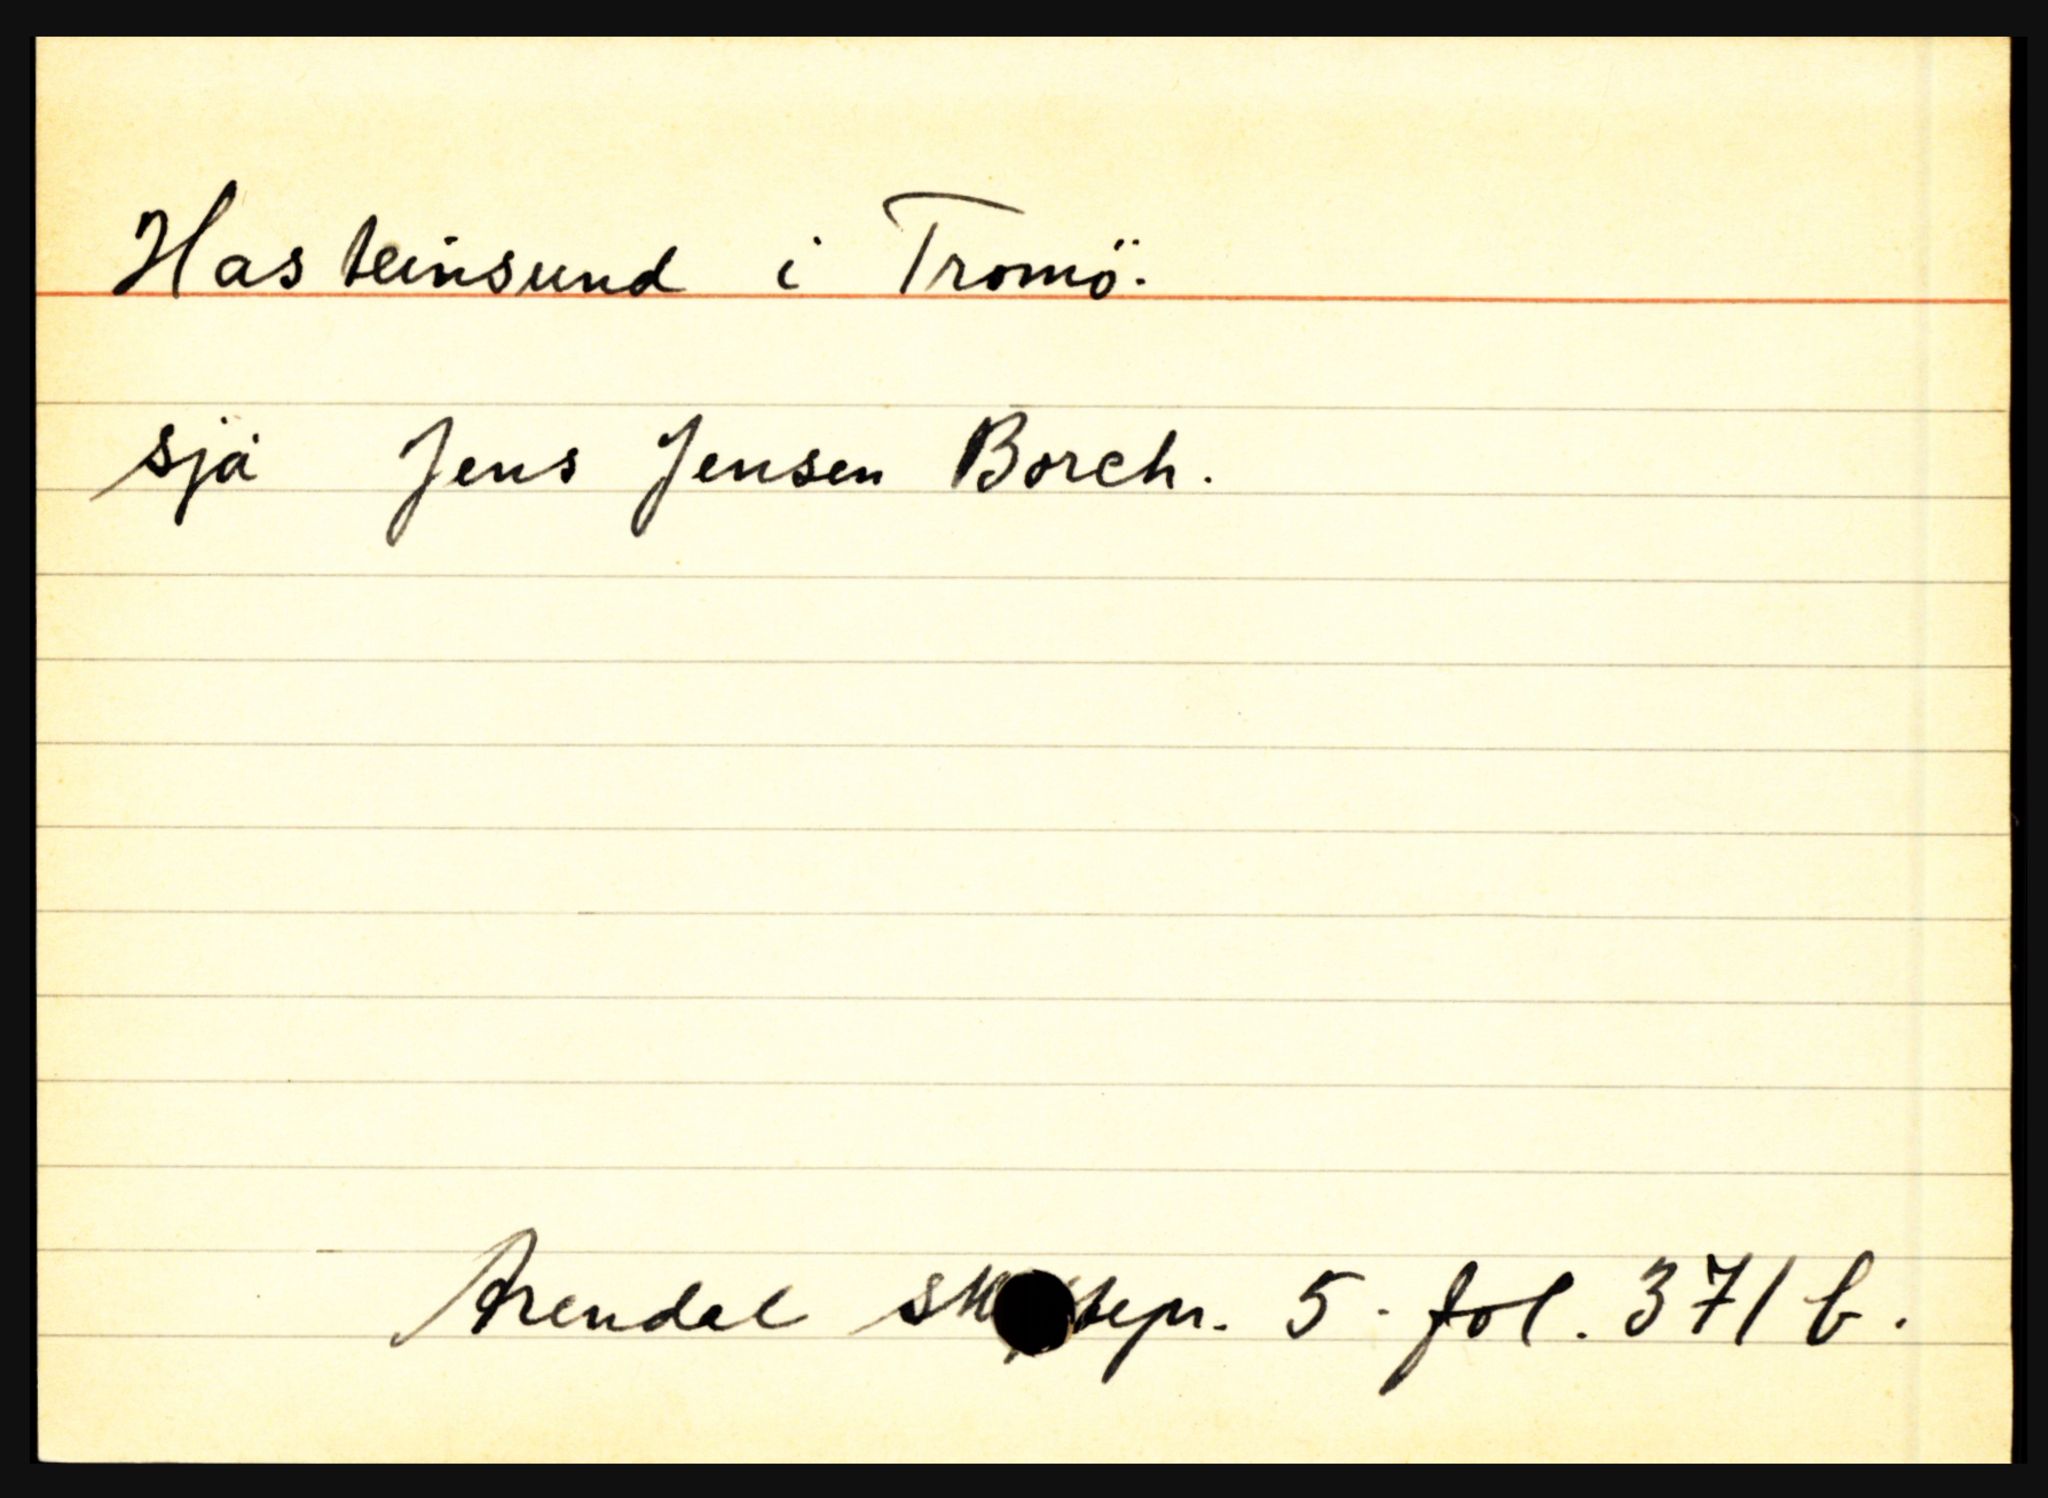 Hasteinsund i Tromö.
sjå Jens Jensen Borch.
Arendal 5. fol. 371 b.